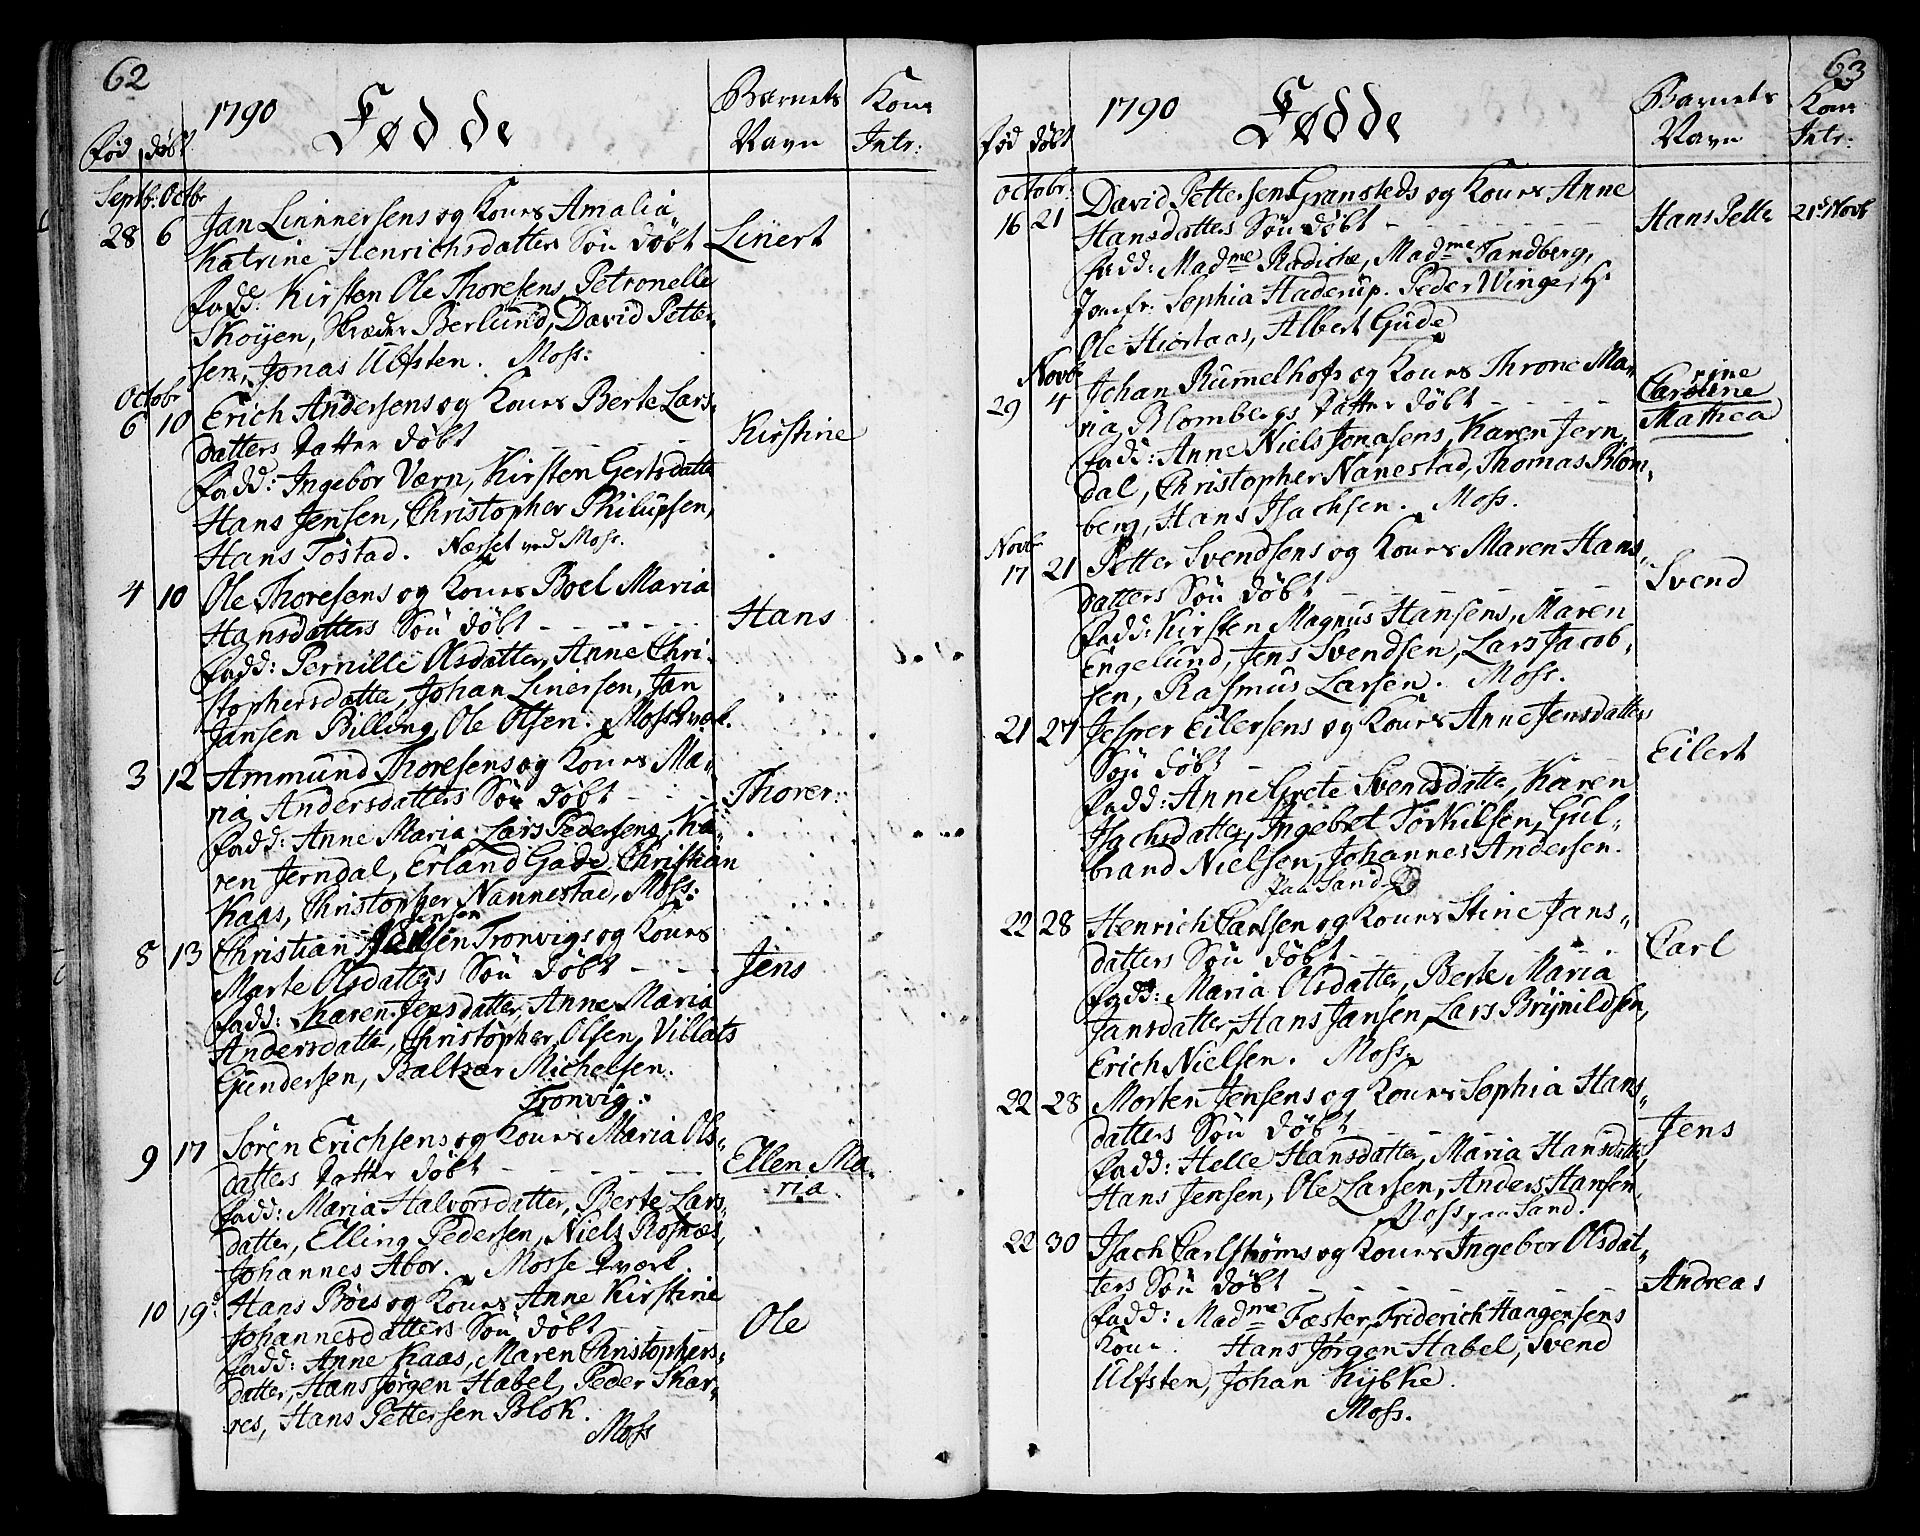 62
1790 Fødde
Barnets Navn
Kon: Intr:
Fød døbt
Septb: Octbr
28 6 Jan Linnersens og Kones Amalia
Katrine Henrichsdatters Søn døbt Linert
Fadd: Kirsten Ole Thoresens, Petronelle
Skoÿen, Skræder Berlund, David Petter-
sen, Jonas Ulfsten. Moss:
Octobr
6 10 Erich Andersens og Kones Berte Lars-
datters datter døbt - - - - Kirstine
Fadd: Ingebor Værn, Kirsten Gertsdatter
Hans Jensen, Christopher Philupsen,
Hans Tostad. Næsset ved Moss.
4 10 Ole Thoresens og Kones Boel Maria
Hansdatters Søn døbt - - - - - Hans
Fadd: Pernille Olsdatter, Anne Chri-
stophersdatter, Johan Linersen, Jan
Jansen Billing, Ole Olsen. Mosseværk.
3 12 Ammund Thoresens og Kones Ma-
ria Andersdatters Søn døbt - - - Thorer:
Fadd: Anne Maria Lars Pedersens, Ka-
ren Jerndal, Erland Gade, Christian
Kaas, Christopher Nannestad, Moss:
Jansen
8 13 Christian Tronvigs og Kones
Marte Olsdatters Søn døbt - - - - Jens
Fadd: Karen Jensdatter, Anne Maria
Andersdatter, Christopher Olsen, Villats
Gundersen, Baltzar Michelsen.
Tronvig:
9 17 Søren Erichsens og Kones Maria Ols-
datters datter døbt - - - - - - Ellen Ma-
ria
Fadd: Maria Halvorsdatter, Berte Lars-
datter, Elling Pedersen, Niels Rosnæs,
Johannes Abor. Mosse Værk.
10 19d Hans Böes og Kones Anne Kirstine
Johannesdatters Søn døbt - - - Ole
Fadd: Anne Kaas, Maren Christophers-
datter, Hans Jørgen Habel, Peder Skar-
res, Hans Pettersen Blok.
Moss
63
1790 Fødde
Barnets Navn
Kone Intr:
Fød døbt
Octobr:
16 21 David Pettersens Gransteds og Kones Anne
Hansdatters Søn døbt - - - - - - Hans Petter 21d Novb
Fadd: Madme Radiche, Madme Tandberg,
Jomfr: Sophia Haderup. Peder Winge, H:
Ole Hiortaas, Albert Gude
Novb
29 4 Johan Rummelhofs og Kones Throne Ma-
ria Blombergs datter døbt - - - - Caroline
rine
Mathea
Fadd: Anne Niels Jonasens, Karen Jern-
dal, Christopher Nanestad, Thomas Blom-
berg, Hans Isachsen. Moss.
Novb
17 21 Petter Svendsens og Kones Maren Hans-
datters Søn døbt - - - - - - Svend
Fadd: Kirsten Magnus Hansens, Maren
Engelund, Jens Svendsen, Lars Jacob-
sen, Rasmus Larsen. Moss.
21 27 Jesper Eilersens og Kones Anne Jensdatters
Søn døbt - - - - - - Eilert
Fadd: Anne Grete Svendsdatter, Karen
Isachsdatter, Ingebret Torkilsen, Gul-
brand Nielsen, Johannes Andersen.
paa Sand
22 28 Henrich Carlsen og Kones Stine Jans-
datters Søn døbt - - - - - - Carl
Fadd: Maria Olsdatter, Berte Maria
Jansdatter, Hans Jansen, Lars Brynildsen,
Erich Nielsen. Moss
22 28 Morten Jensens og Kones Sophia Hans-
datters Søn døbt - - - - - - Jens
Fadd: Helle Hansdatter, Maria Hansdatter
Hans Jensen, Ole Larsen, Anders Hansen,
Moss paa Sand.
22 30 Isach Carlstrøms og Kones Ingebor Olsdat-
ters Søn døbt - - - - - - Andreas
Fadd: Madme Fæster, Friderich Haagensens
Kone. Hans Jørgen Habel, Svend
Ulfsten, Johan Kybke.
Moss.